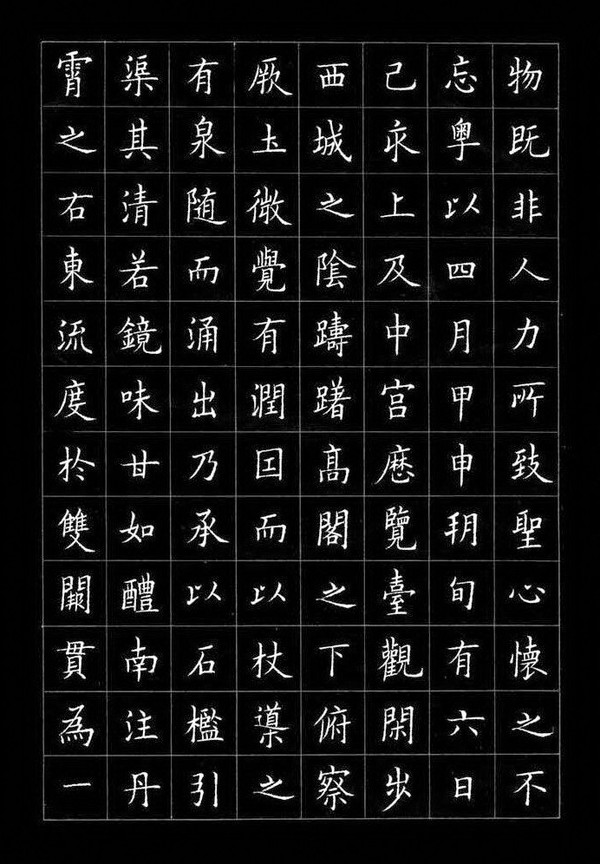 物既非人力所致聖心懷之不
忘粵以四月甲申朔旬有六日
己亥上及中宮歷覽臺觀閑步
西城之陰躊躇髙閣之下俯察
厥土微覺有潤因而以杖導之
有泉随而涌出乃承以石檻引
渠其清若鏡味甘如醴南注丹
霄之右東流度於雙闕貫為一